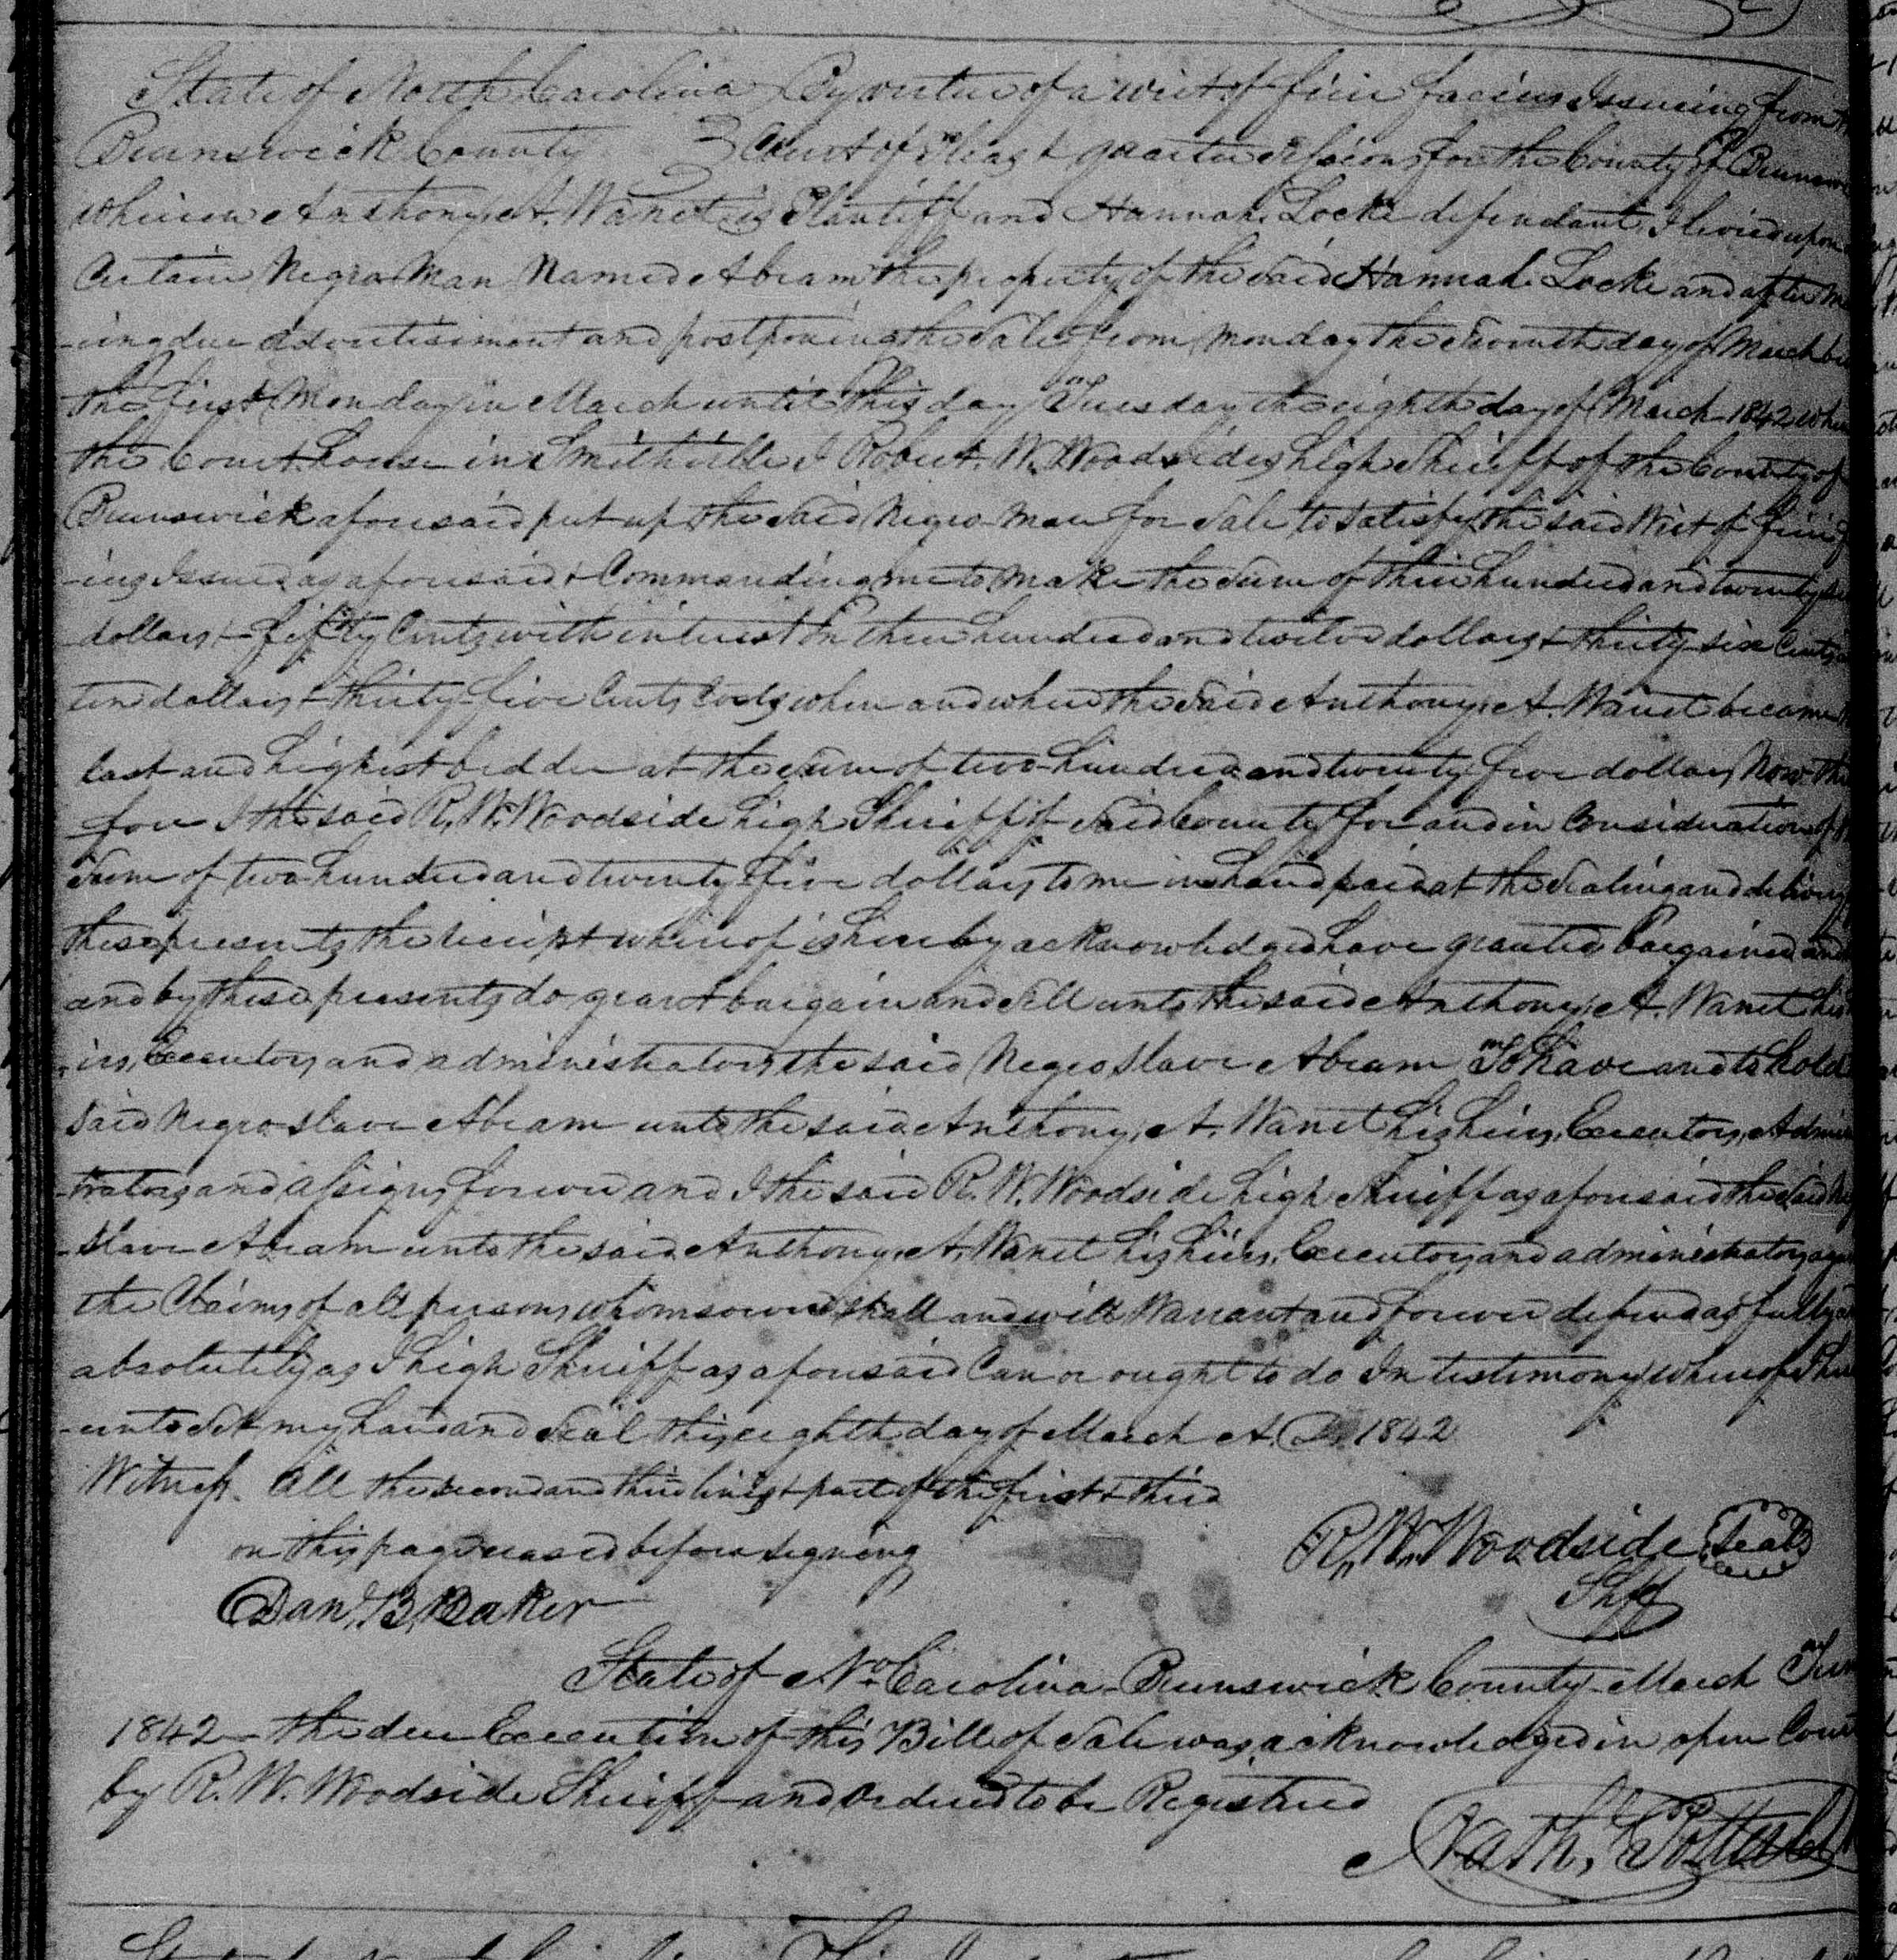 State of North Carolina } By virtue of a writ of fieri facias Issueing from
Brunswick County } Court of Pleas & quarter Sessions for the County of Brunsw
wherein Anthony A. Wanet is Plantiff and Hannah Locke defendant, I levied upon
Certain Negro Man Named Abram the property of the said Hannah Locke and after ma
-ing due advertisement and postponing the Sale from Monday the Seventh day of March be
the first Monday in March until this day Tuesday the eighth day of March 1842 when
the Court house in Smithville I Robert W. Woodsides high Sheriff of the County of
Brunswick aforesaid put up the said Negro man for Sale to satisfy the said Writ of fieri f
-ias Issued as aforesaid & Commanding me to make the Sum of three hundred and twenty
dollars & fifty Cents with interest on three hundred and twelve dollars & thirty six Cents
ten dollars & thirty-five Cents Costs when and where the said Anthony A. Wanet became
last and highest bidder at the sum of two hundred and twenty five dollars Now the
fore I the said R. W. Woodside high Sheriff of said County for and in Consideration of
Sum of two hundred and twenty five dollars to me in hand paid at the Sealing and delivery
these presents the reciept whereof is hereby acknowledged have granted Bargained and
and by these presents do grant bargain and Sell unto the said Anthony A. Wanet his
-irs, Executors and administrators the said Negro Slave Abram To have and to hold
said Negro slave Abram unto the said Anthony A. Wanet his heirs, Executors, Admini
-trators and assigns forever and I the said R. W. Woodside high Sheriff as aforesaid the said Ne
-Slave Abram unto the said Anthony A. Wanet his heirs, Executors and administrators aga
the Claims of all persons whomsoever shall and will Warrant and forever defend as fully
absolutely as I high Sheriff as aforesaid Can or ought to do In testimony whereof I he
-unto Set my hand and Seal this eighth day of March A. D. 1842
Witness. All the second and third lines & part of the first & third
on this page erased before signing
R. W. Woodside Seal
Shff
Dan. B. Baker
State of No Carolina - Brunswick County - March Term
1842 - the due Execution of this Bill of Sale was acknowledged in open Court
by R. W. Woodside Sheriff and ordered to be Registered
Nath.